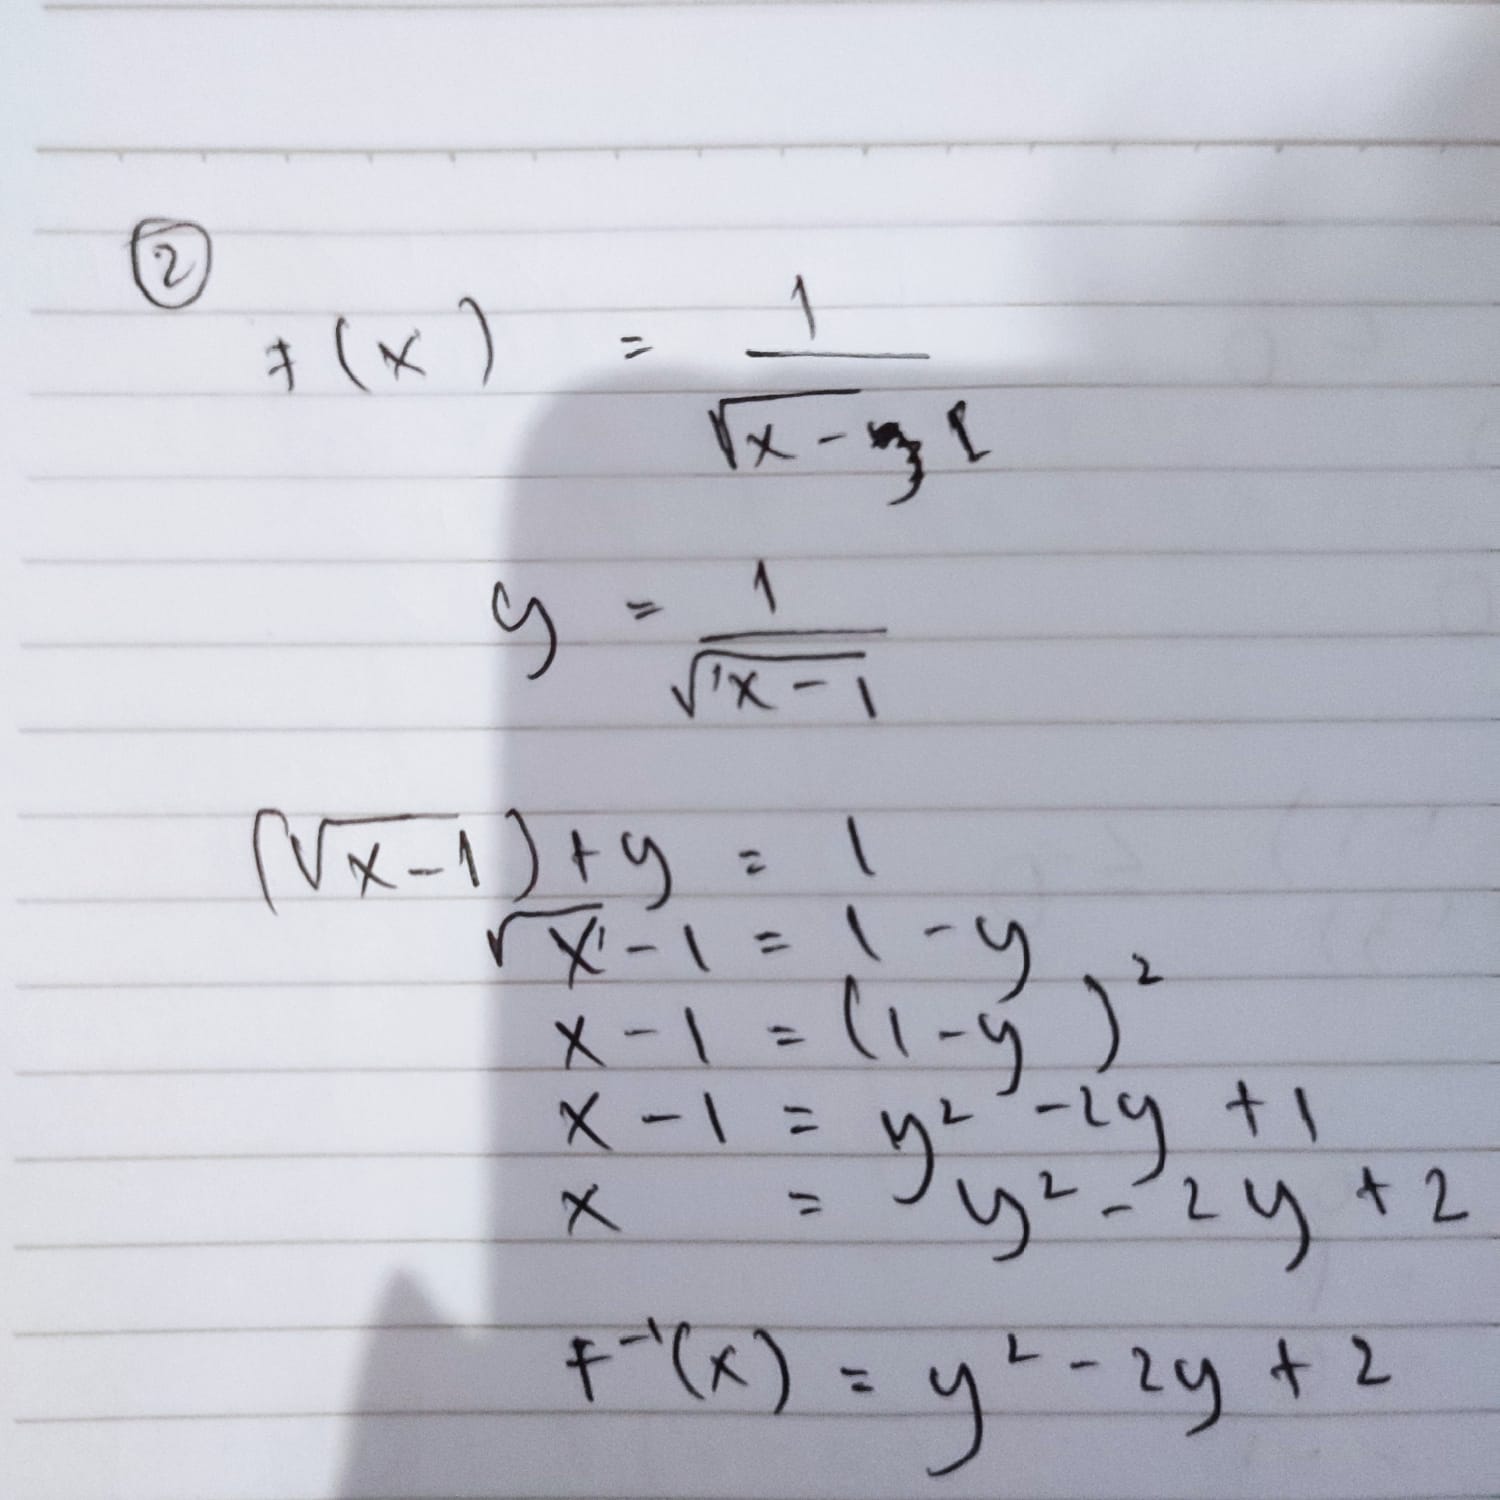 ②
f(x) = 1/√x - 1
y = 1/√x-1
(√x-1) + y = 1
√x-1 = 1-y
x-1 = (1-y)²
x-1 = y²-2y+1
x = y²-2y+2
f⁻¹(x) = y²-2y+2